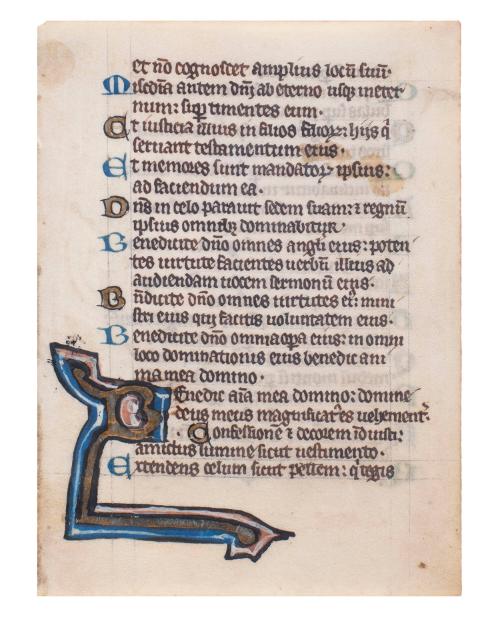 et nō cognoscet amplius locū suū·
Misc̄dia autem dn̄i ab eterno usq; in eter
num: sup timentes eum·
Et iusticia illius in filios filiorꝝ: hijs q̄
seruant testamentum eius·
Et memores sunt mandatorꝝ ipsius:
ad faciendum ea·
Dn̄s in celo parauit sedem suam: ⁊ regnū
ipsius omnibꝫ dominabitur·
Benedicite dn̄o omnes angli eius: poten
tes uirtute facientes uerbū illius ad
audiendam uocem sermonū eius·
Bn̄dicite dn̄o omnes uirtutes eꝰ: mini
stri eius qui facitis uoluntatem eius·
Benedicite dn̄o omnia opa eius: in omni
loco dominationis eius benedic ani
ma mea domino·
Benedic aīa mea domino: domine
deus meus magnificatꝰ es uehementˀ·
Confessionē ⁊ decorem īduisti:
amictus lumine sicut uestimento·
Extendens celum sicut pellem: q̄ tegis